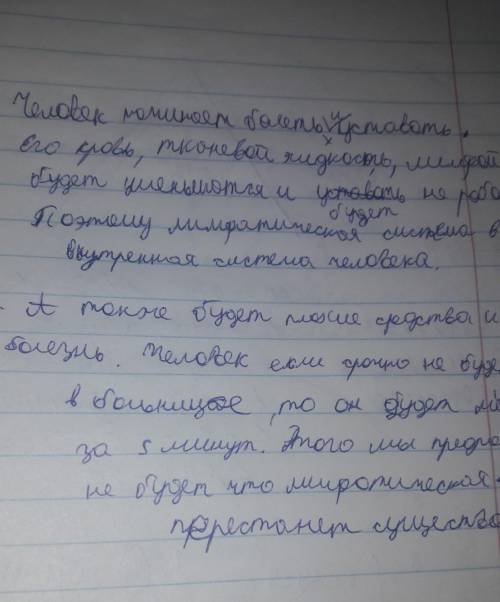 Человек начинает болеть и уставать.
Его кровь, тканевой жидкость, лимфой
будет уменьшотся и уставать не рабо
будет
Поэтому лимфатическая система в
внутренная система человека.
А также будет плохие средства и
болезнь. Человек если срочно не буде
в больнице, то он будет
за 5 минут. Этого мы предпо
не будет что лимфатическая
перестанет существо